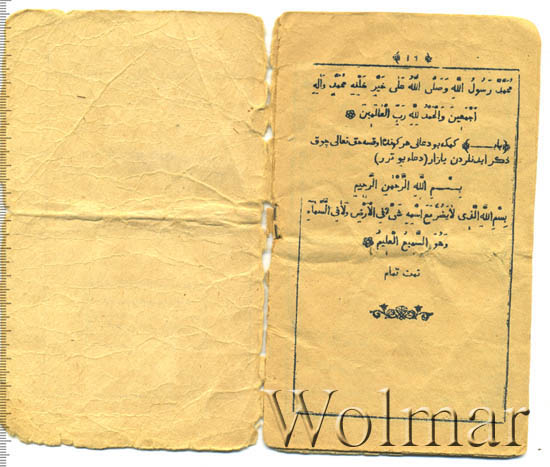 ﴿١٦﴾
مُحَمَّدٌ رَسُولُ اللهِ وَصَلَّى اللهُ عَلَى خَيْرِ خَلْقِهِ مُحَمَّدٍ وَآلِهِ
أَجْمَعِينَ وَالْحَمْدُ لِلّٰهِ رَبِّ الْعَالَمِينَ
﴿باب﴾ كمكه بو دعائى هر كون اوقسه حق تعالى چوق
ذكر ايدنلردن يازار (دعاء بو درر)
بِسْمِ اللهِ الرَّحْمٰنِ الرَّحِيمِ
بِسْمِ اللهِ الَّذِى لَا يَضُرُّ مَعَ اسْمِهِ شَىْءٌ فِى الْأَرْضِ وَلَا فِى السَّمَاءِ
وَهُوَ السَّمِيعُ الْعَلِيمُ
تمت تمام
Wolmar